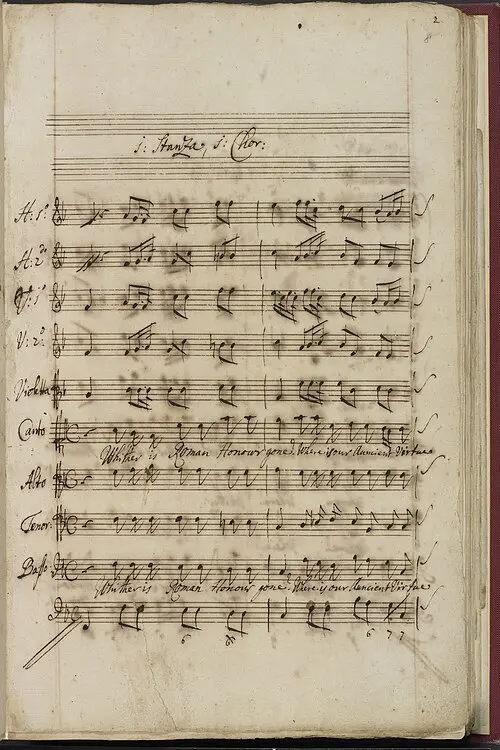 2
8
1: Stanza, 1: Chor:
H: 1º
H: 2º
V: 1º
V: 2º
Violetta
Canto
Whither is Roman Honour gone? Where is our Auncient Virtue
Alto
Tenor:
Basso
Whither is Roman Honour gone? Where is our Auncient Virtue
6 6 6 7 7